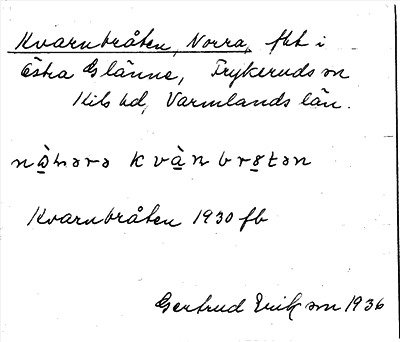 Kvarnbråten, Norra, fht i
Östra Glänne, Frykeruds sn
Kils hd, Värmlands län.
Kvarnbråten 1930 fb
Gertrud Eriksson 1936